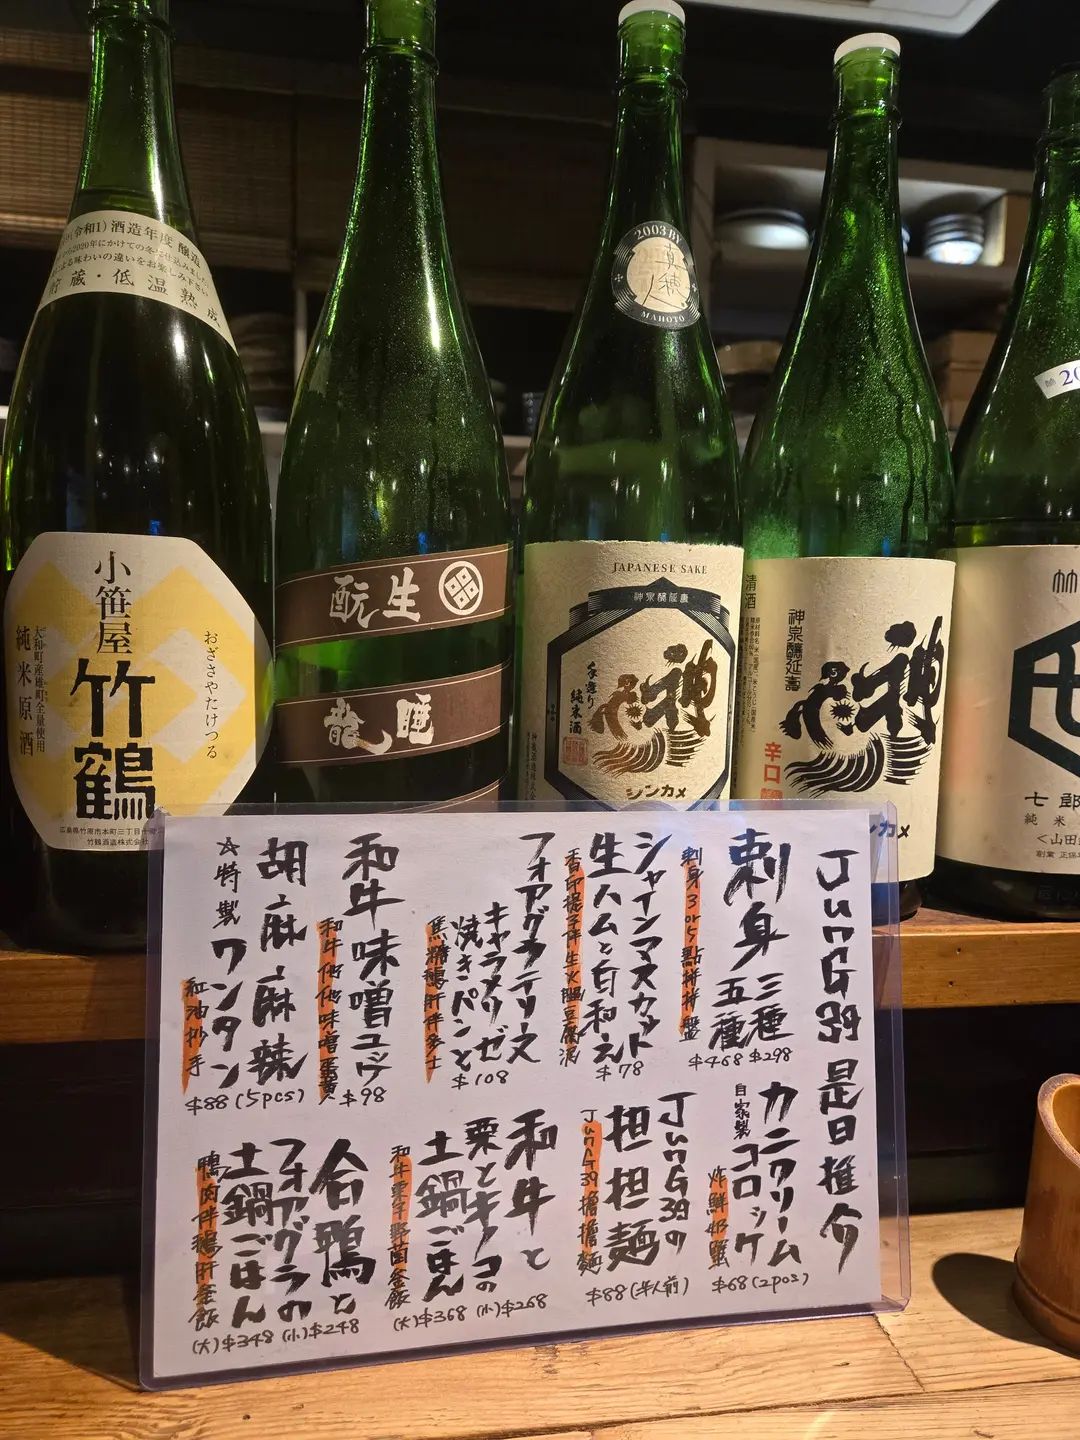 (令和1)酒造年度 醸造
貯蔵・低温熟成
小笹屋
竹鶴
おざさやたけつる
大和町産雄町全量使用
純米原酒
広島県竹原市本町三丁目十番
竹鶴酒造株式会社
生酛
睡龍
2003BY
真穂人
MAHOTO
JAPANESE SAKE
神泉醸延寿
神亀
手造り
純米酒
シンカメ
清酒
神泉醸延寿
神亀
辛口
カメ
20
七郎
純米
<山田
創業
JunG39 是日推介
刺身 三種 $298
五種 $468
刺身3or5點拼拼盤
シャインマスカット
生ハムと白和え
香印提子伴生火腿豆腐泥
$78
フォアグラテリーヌ
キャラメリゼ
焼きパンと
焦糖鵝肝伴多士
$108
和牛味噌ユッケ
$98
胡麻麻辣
☆特製ワンタン
紅油抄手
$88 (5pcs)
カニクリーム
自家製コロッケ
炸鮮奶蟹
$68 (2pcs)
JunG39の
担担麺
JunG39擔擔麵
$88 (半人前)
和牛と
栗とキノコの
土鍋ごはん
和牛栗子野菌釜飯
(大)$368 (小)$268
合鴨と
フォアグラの
土鍋ごはん
鴨肉伴鵝肝釜飯
(大)$348 (小)$248